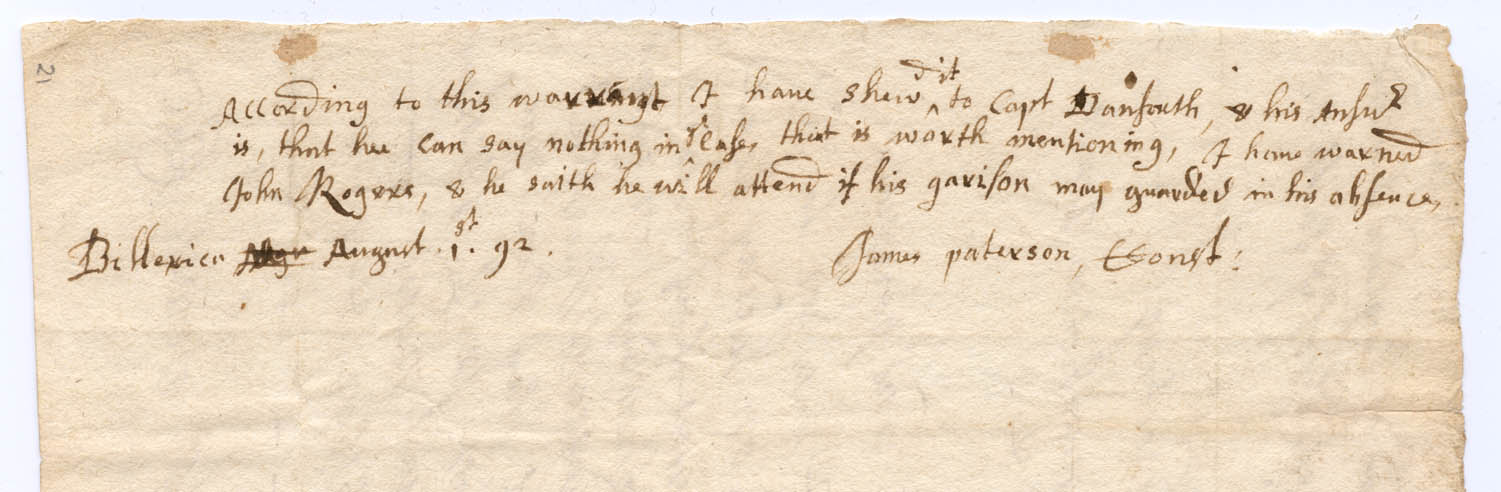 21
According to this warrant I have shewd it to Capt Danforth, & his Answr
is, that hee can say nothing in ye Case, that is worth mentioning, I have warned
John Rogers, & he saith he will attend if his garison may guarded in his absence,
Billerica August. 1.st 92. James paterson, Const: